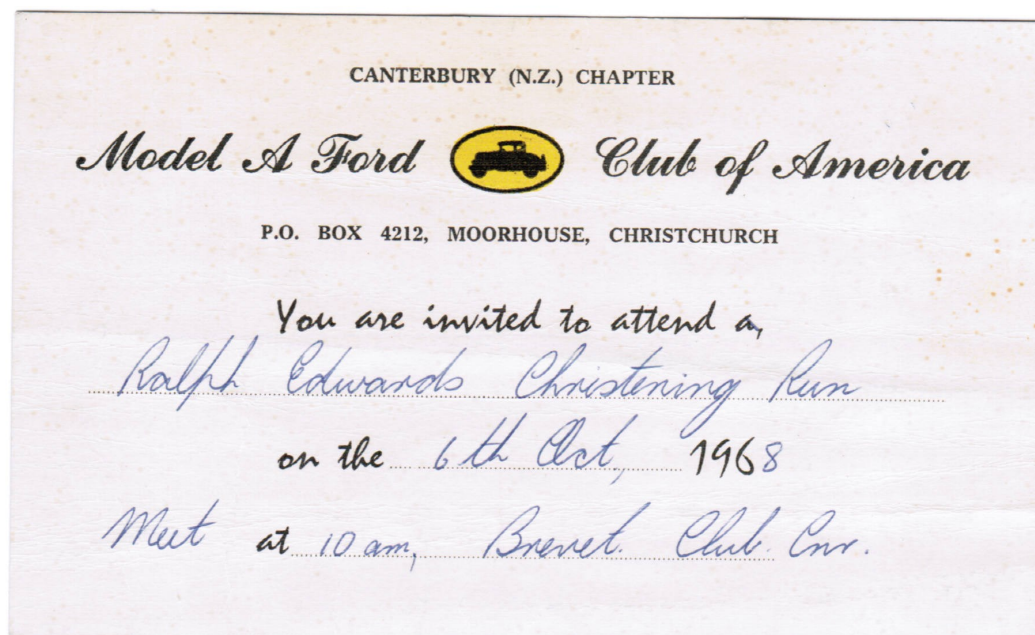 CANTERBURY (N.Z.) CHAPTER
Model A Ford Club of America
P.O. BOX 4212, MOORHOUSE, CHRISTCHURCH
You are invited to attend a,
Ralph Edwards Christening Run
on the 6th Oct, 1968
Meet at 10 am, Brevet. Club. Cnr.